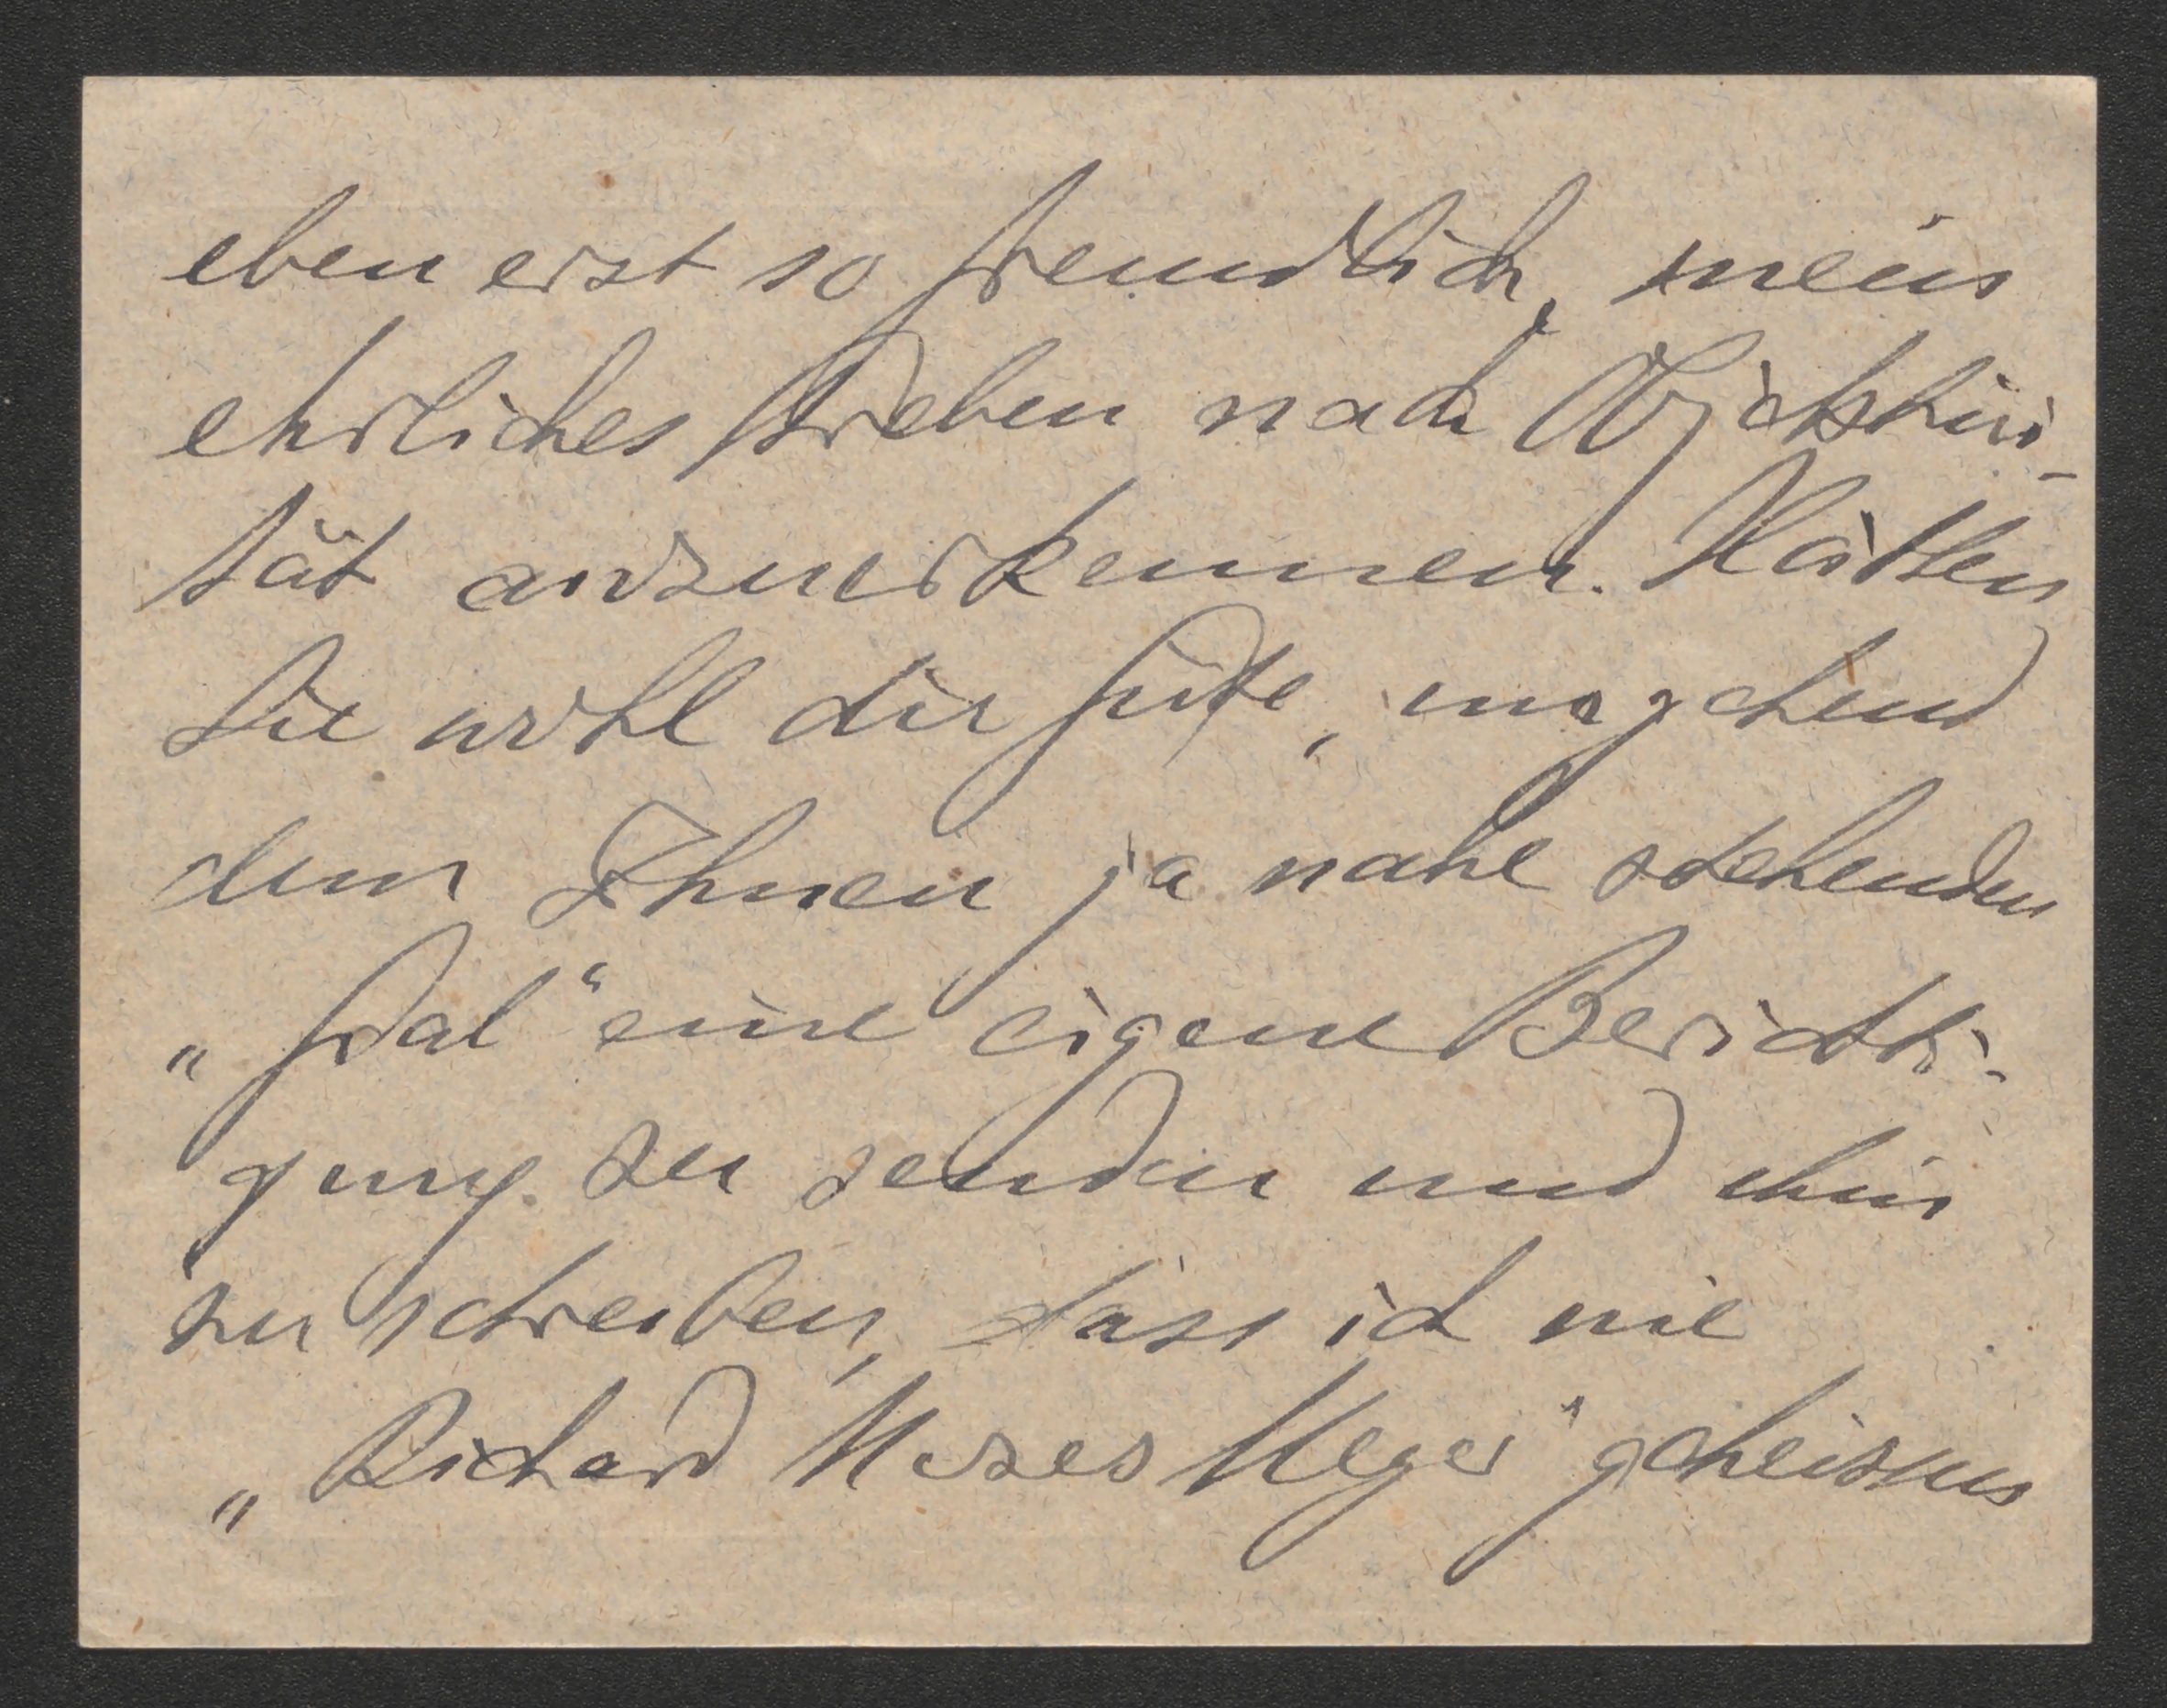 eben erst so freundlich, mein
ehrliches Streben nach Objektivi-
tät anzuerkennen. Hätten
Sie wohl die Güte, umgehend
dem Ihnen ja nahe stehenden
„Gral“ eine eigene Berichti-
gung zu senden und ihm
zu schreiben, dass ich nie
„Richard Moses Meyer“ geheissen